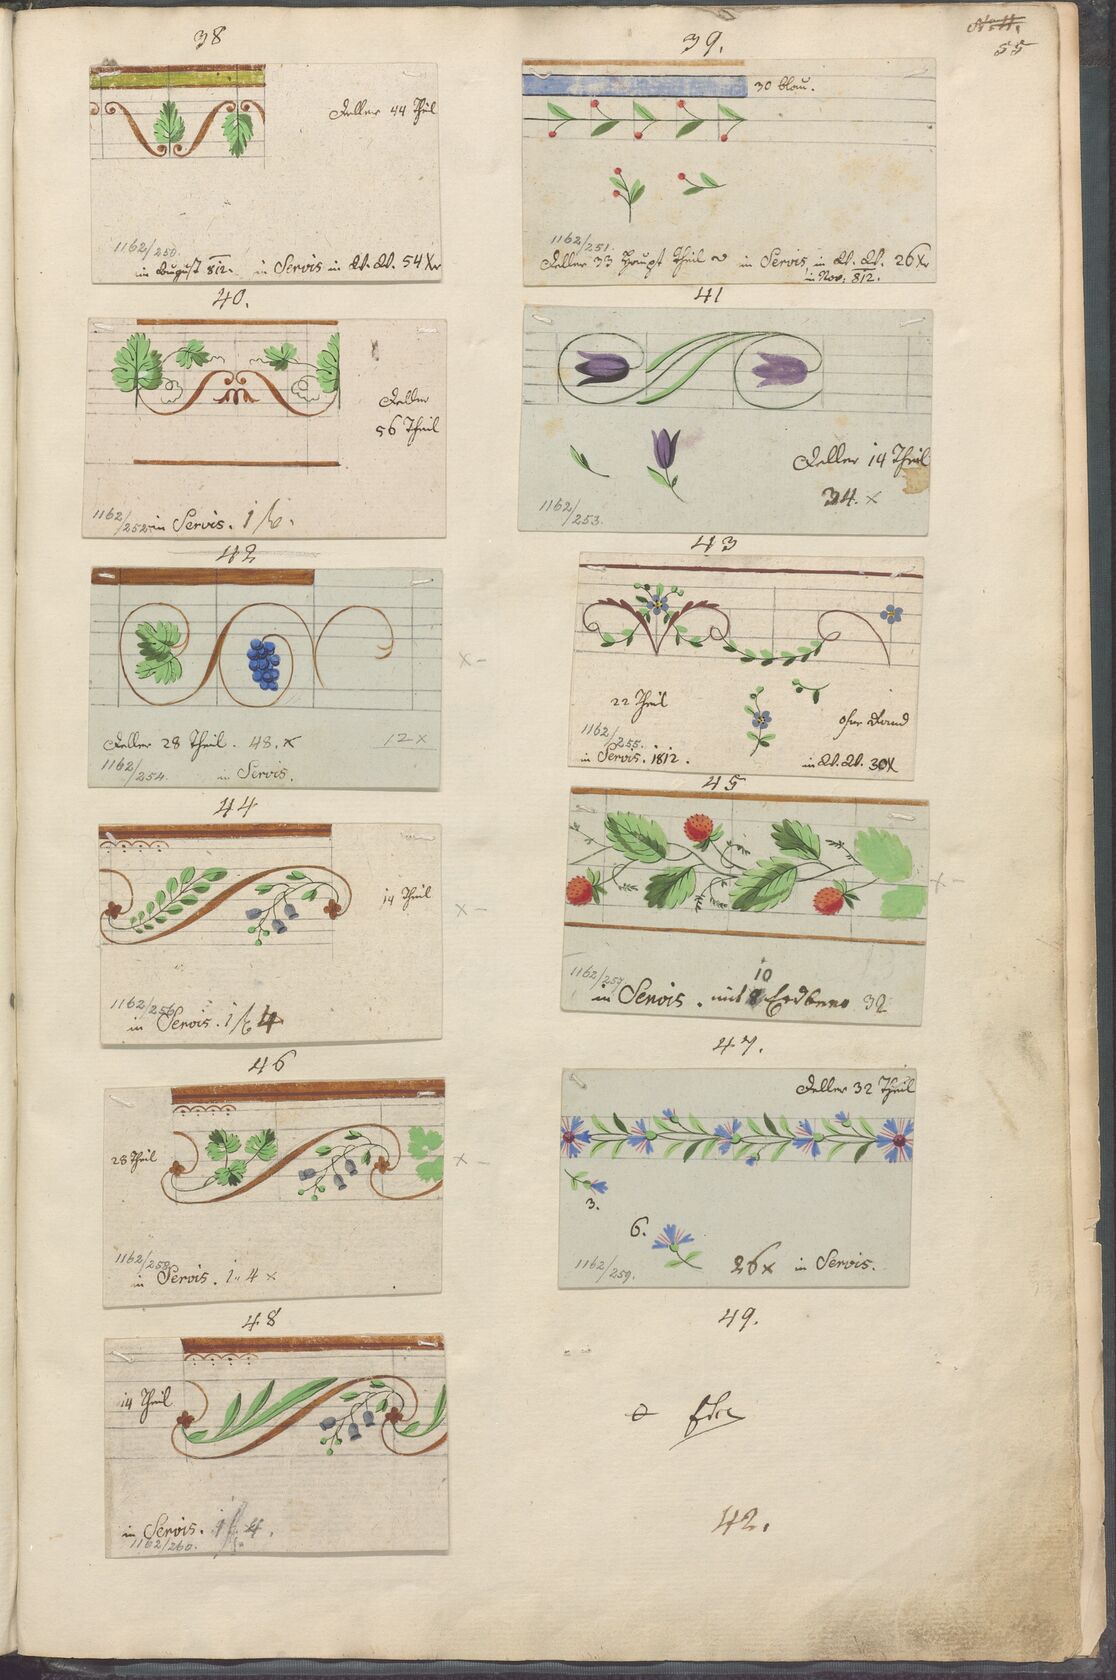 N: 11.
55
38
Teller 44 Theil
1162/250.
im August 812. in Servis in W. W. 54 Xr
39.
30 blau.
1162/251.
Teller 33 Haupt Theil in Servis, in W. W. 26 Xr
in Nov: 812.
40.
Teller
56 Theil
1162/252
in Servis. 1 f.
41
Teller 14 Theil
34. x
1162/253.
42
Teller 28 Theil. 48. x 12 x
1162/254.
in Servis.
x -
43
22 Theil
ohne Rand
1162/255.
in Servis. 1812. in W. W. 30X
44
14 Theil
x -
1162/256
in Servis. 1 f 4
45
x -
1162/257
10
in Servis. mit Erdbeer 32
46
28 Theil
x -
1162/258
in Servis. 1. 4 x
47.
Teller 32 Theil
3.
6.
26x in Servis.
1162/259.
48
14 Theil
in Servis. 1 f 4.
1162/260.
49.
42.